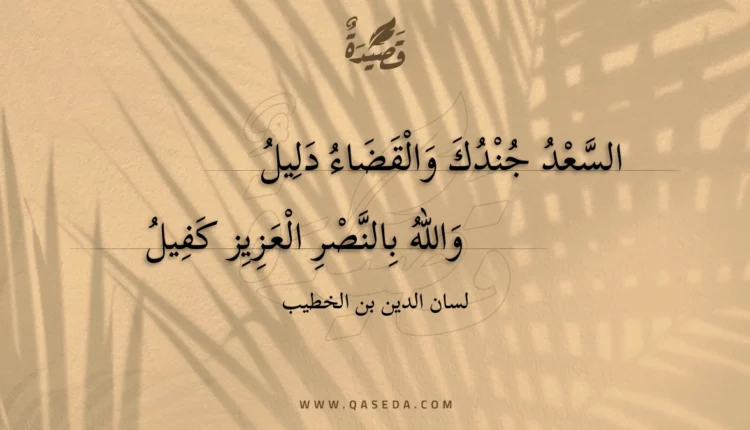 قَصِيدَةٌ
السَّعْدُ جُنْدُكَ وَالْقَضَاءُ دَلِيلُ
وَاللهُ بِالنَّصْرِ الْعَزِيزِ كَفِيلُ
لسان الدين بن الخطيب
WWW.QASEDA.COM